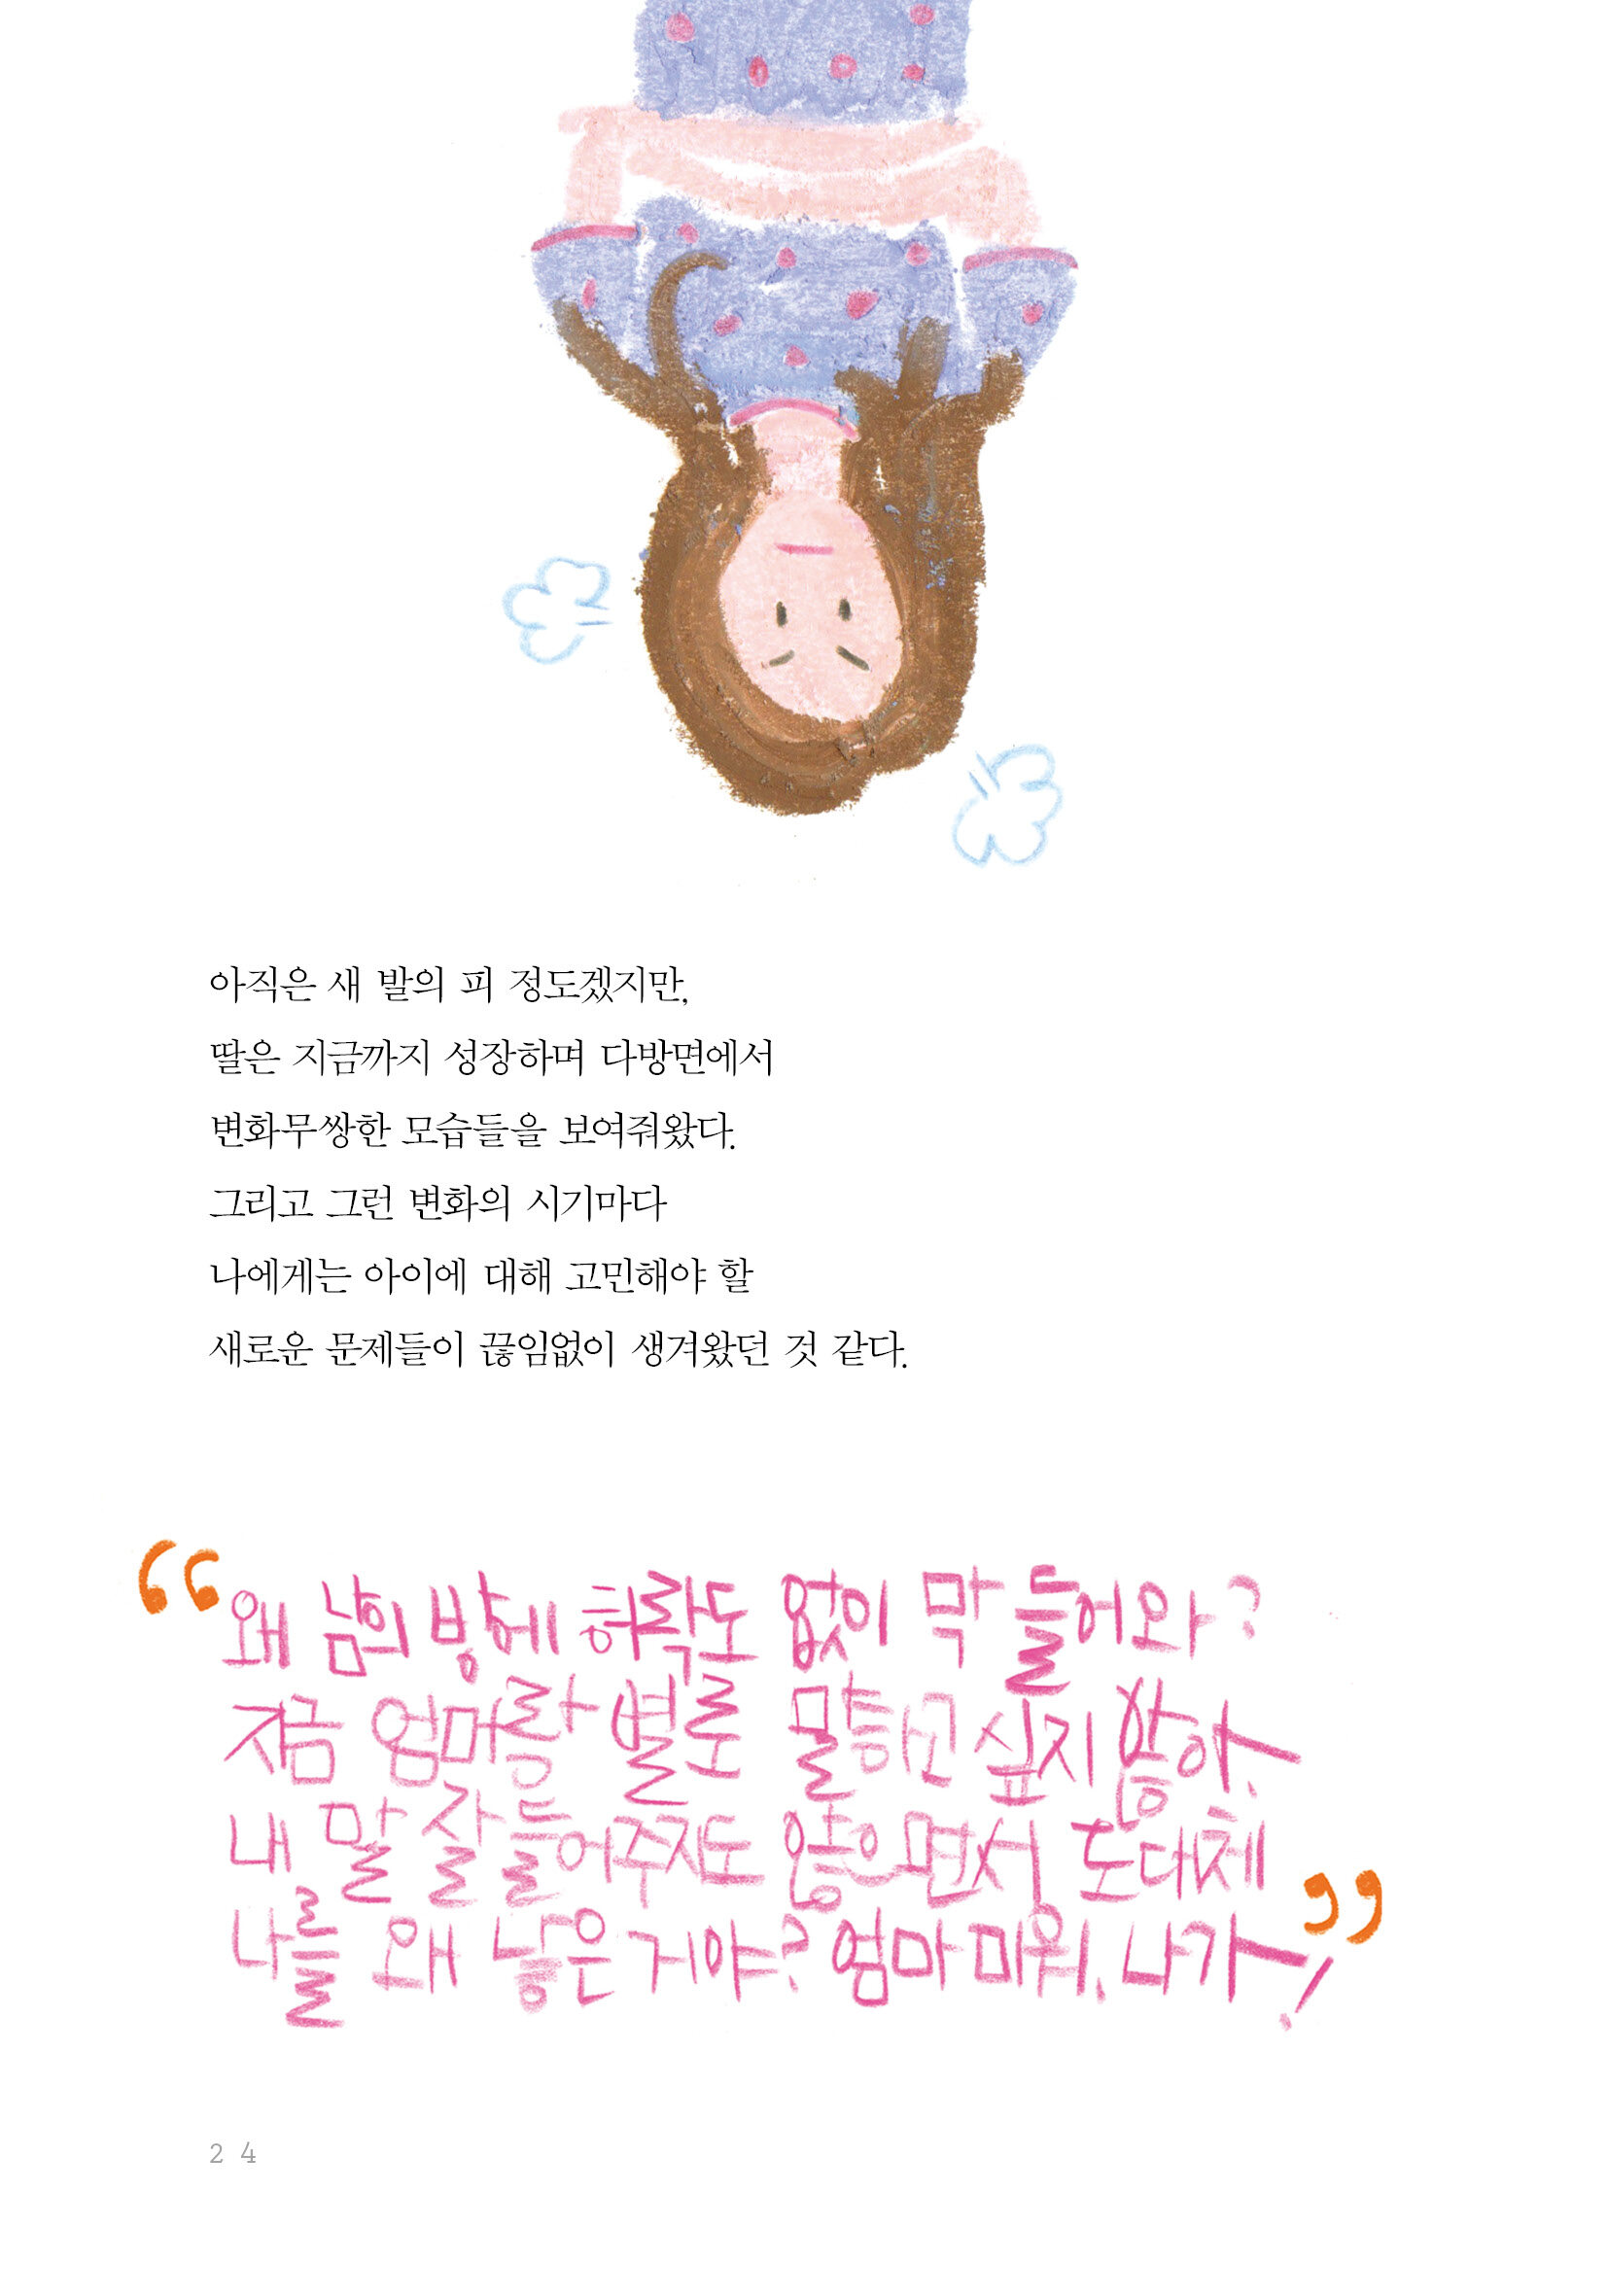 아직은 새 발의 피 정도겠지만,
딸은 지금까지 성장하며 다방면에서
변화무쌍한 모습들을 보여줘왔다.
그리고 그런 변화의 시기마다
나에게는 아이에 대해 고민해야 할
새로운 문제들이 끊임없이 생겨왔던 것 같다.
“왜 남의 방에 허락도 없이 막 들어와?
지금 엄마랑 별로 말하고 싶지 않아.
내 말 잘 들어주지도 않으면서 도대체
나를 왜 낳은 거야? 엄마 미워. 나가!”
24